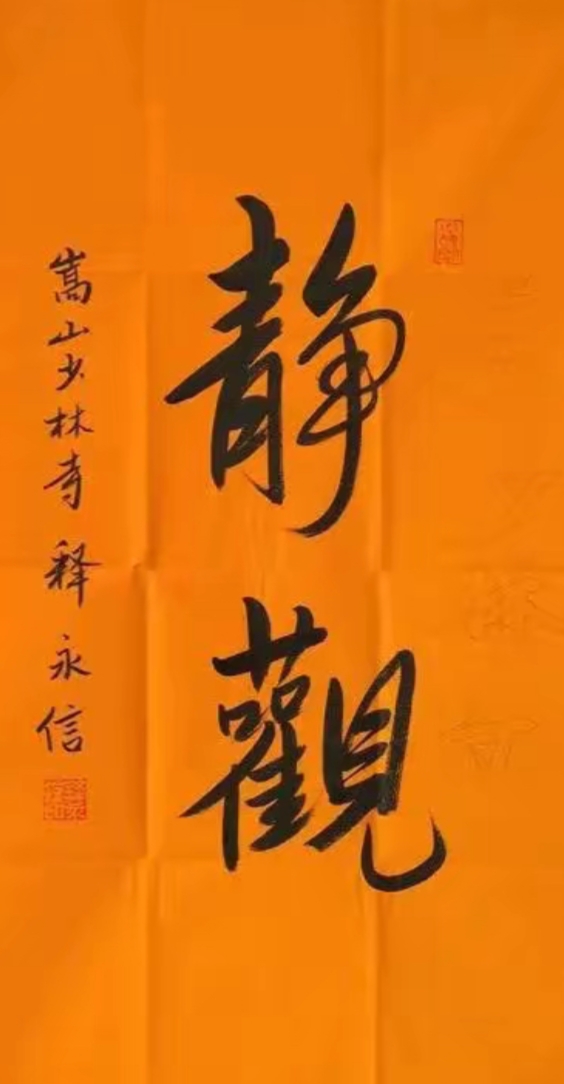 静觀
嵩山少林寺 释永信